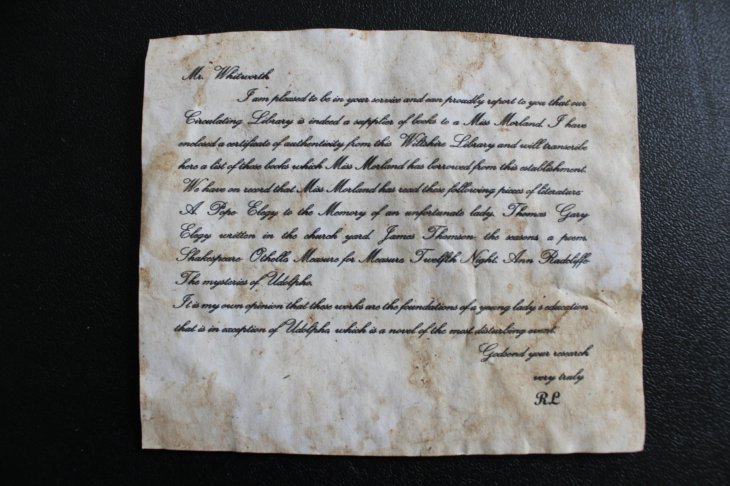 Mr. Whitworth
I am pleased to be in your service and can proudly report to you that our
Circulating Library is indeed a supplier of books to a Miss Morland. I have
enclosed a certificate of authenticity from this Wiltshire Library and will transcribe
here a list of those books which Miss Morland has borrowed from this establishment.
We have on record that Miss Morland has read these following pieces of literature:
A. Pope Elegy to the Memory of an unfortunate lady. Thomas Gary
Elegy written in the church yard. James Thomson the seasons a poem
Shakespeare Othello, Measure for Measure, Twelfth Night. Ann Radcliff
The mysteries of Udolpho.
It is my own opinion that these works are the foundations of a young lady's education
that is in exception of Udolpho, which is a novel of the most disturbing event.
Godsend your research
very truly
R.L